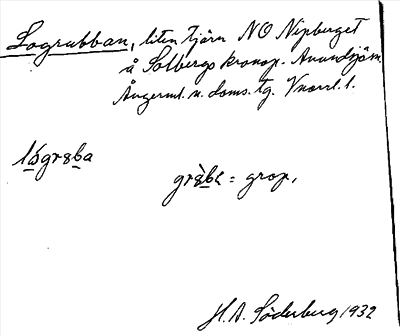 Logrubban, liten tjärn NO Nipberget
å Solbergs kronop. Anundsjö sn
Ångerml. n. doms. tg. Vnorrl. l.
lógrɞba
grɞ̀bɛ = grop,
H.A. Söderberg 1932